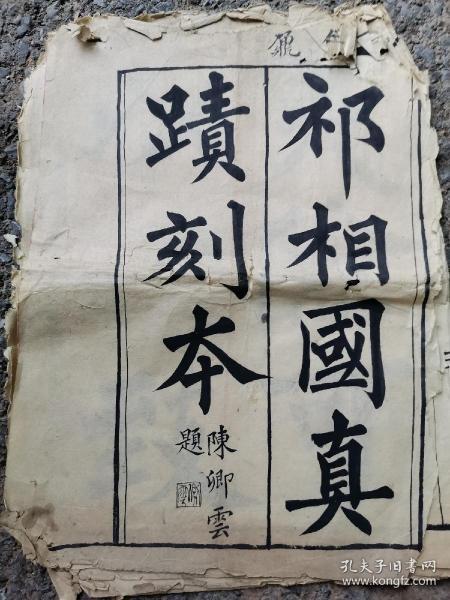 祁相國真
蹟刻本
陳卿雲
題
孔夫子旧书网
www.kongfz.com